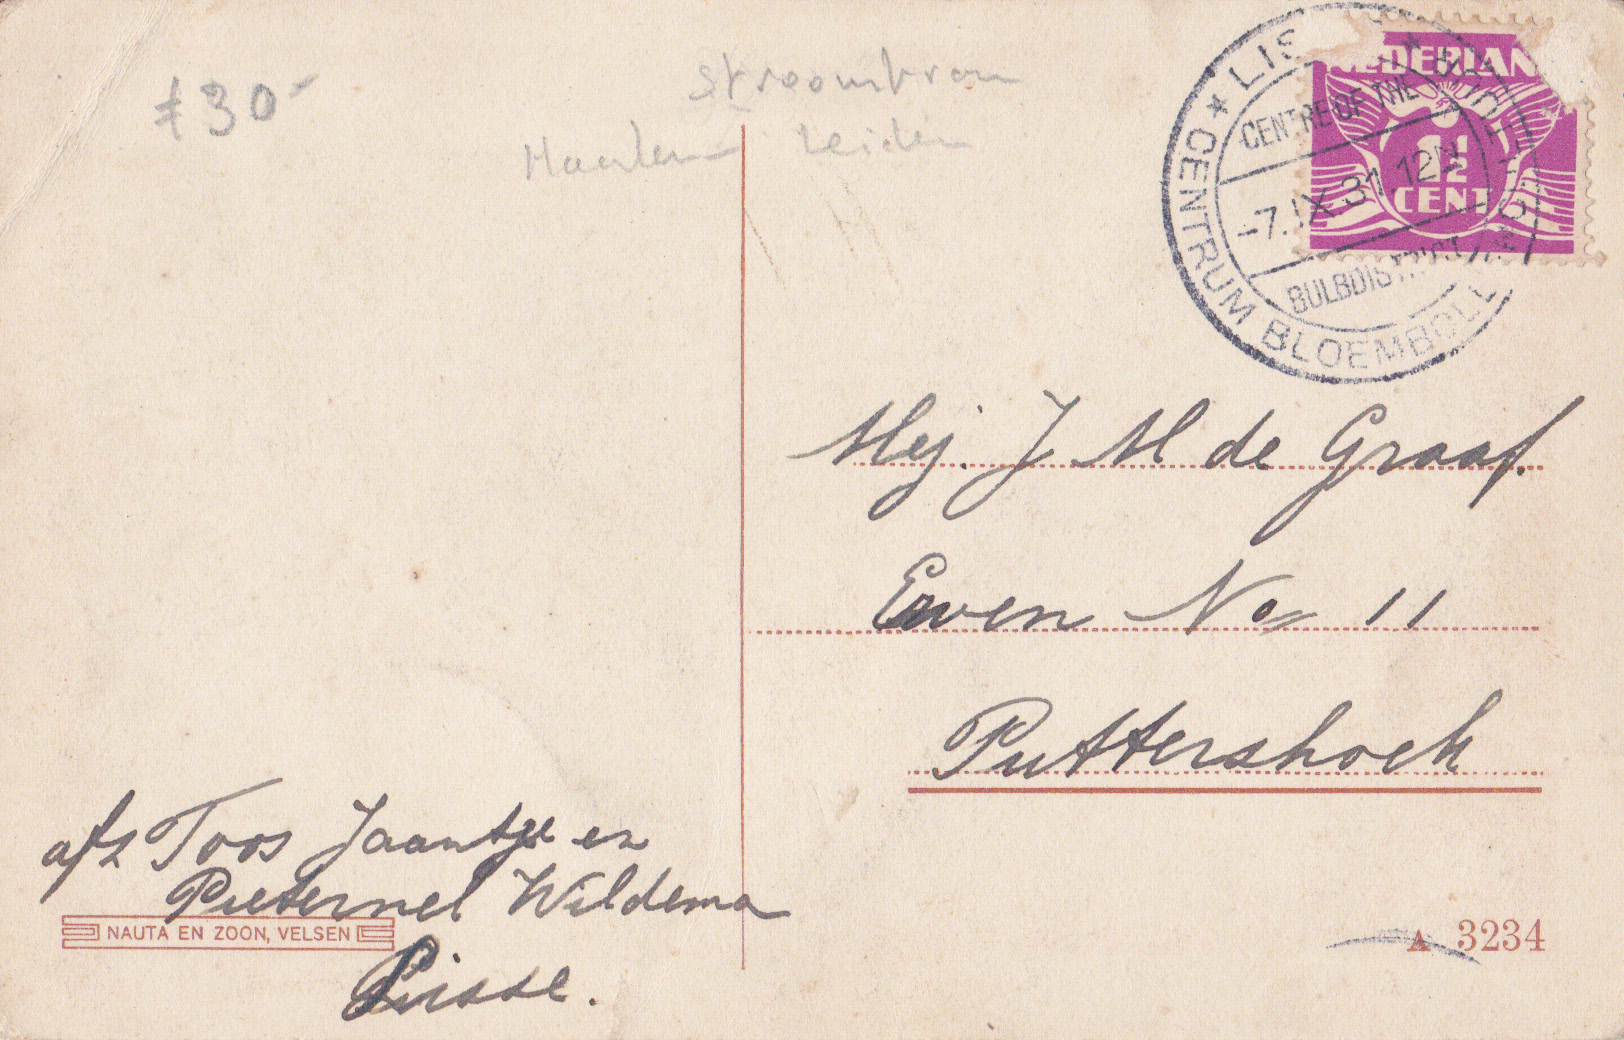 f 30-
stroomtram
Haarlem Leiden
NEDERLAND
1½
CENT
LISSE
CENTRUM BLOEMBOLL
CENTRE OF THE
-7.IX.31.12N
BULBDISTRICT
Mej. J M de Graaf.
No 11
Puttershoek
afz Toos Jaantje en
Pieternel Wildema
Lisse.
NAUTA EN ZOON, VELSEN
3234